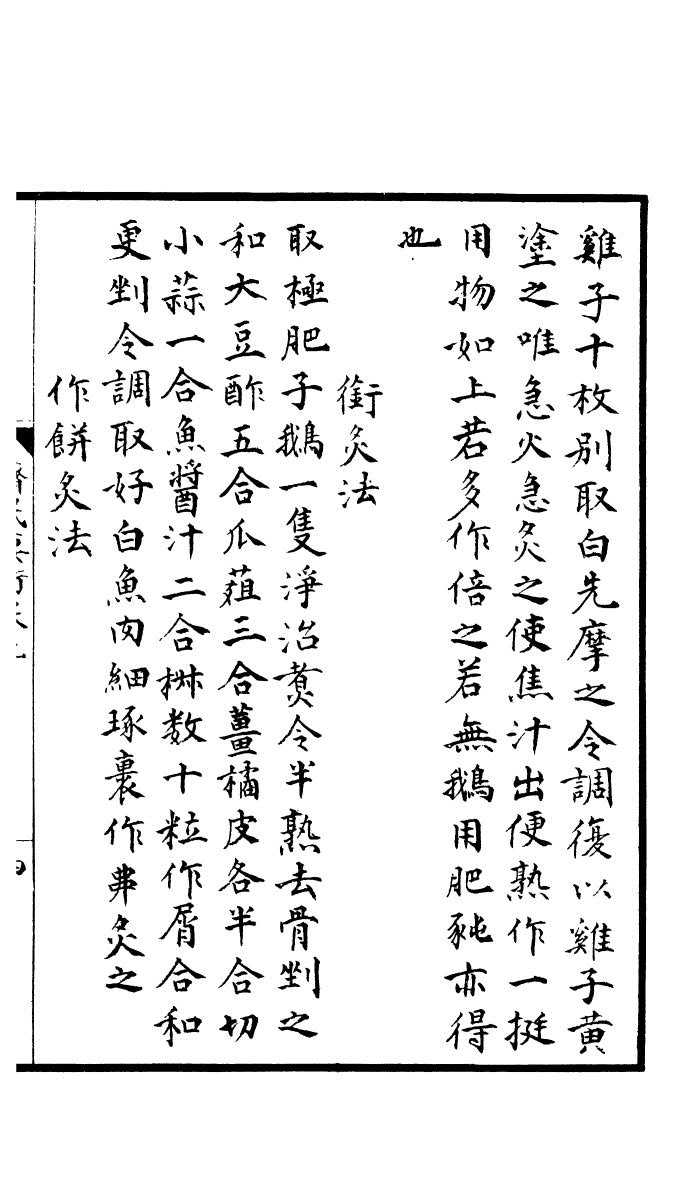 雞子十枚别取白先摩之令調復以雞子黄
塗之唯急火急炙之使焦汁出便熟作一挺
用物如上若多作倍之若無鵝用肥豘亦得
也
銜炙法
取極肥子鵝一隻淨治煑令半熟去骨剉之
和大豆酢五合瓜葅三合薑橘皮各半合切
小蒜一合魚醬汁二合椒数十粒作屑合和
更剉令調取好白魚肉細琢裹作弗炙之
作餅炙法